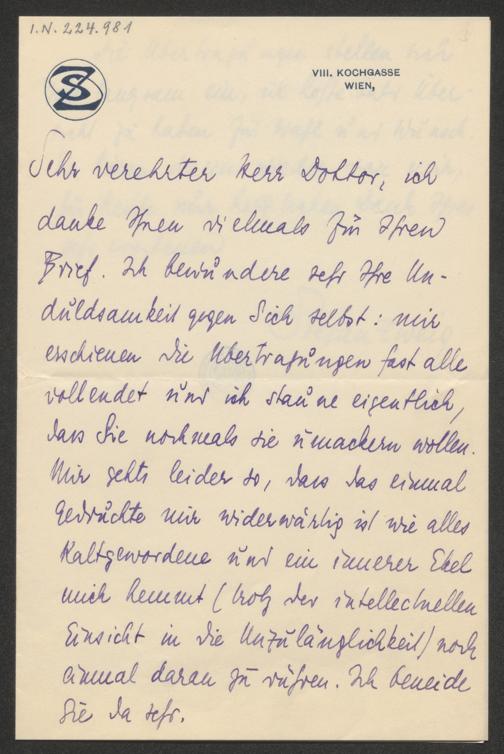 I.N. 224.981
SZ
VIII. KOCHGASSE
WIEN,
Sehr verehrter Herr Doktor, ich
danke Ihnen vielmals für Ihren
Brief. Ich bewundere sehr Ihre Un-
duldsamkeit gegen Sich selbst: mir
erschienen die Übertragungen fast alle
vollendet und ich staune eigentlich,
dass Sie nochmals sie umackern wollen.
Mir gehts leider so, dass das einmal
Gedruckte mir widerwärtig ist wie alles
Kaltgewordene und ein innerer Ekel
mich hemmt (trotz der intellectuellen
Einsicht in die Unzulänglichkeit) noch
einmal daran zu rühren. Ich beneide
Sie da sehr.